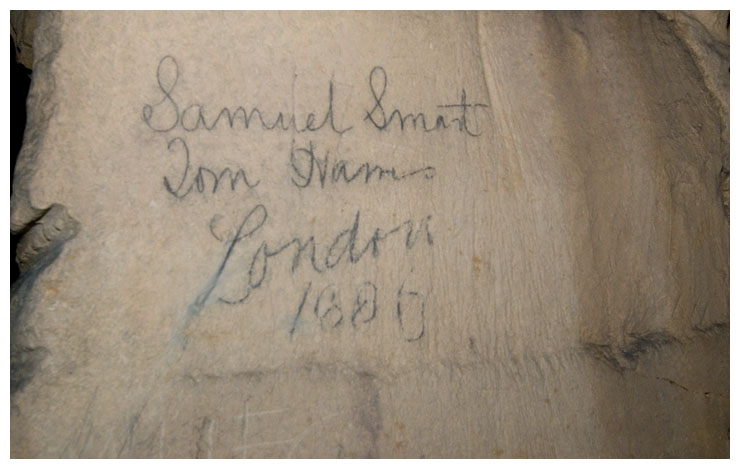 Samuel Smart
Tom Harris
London
1880